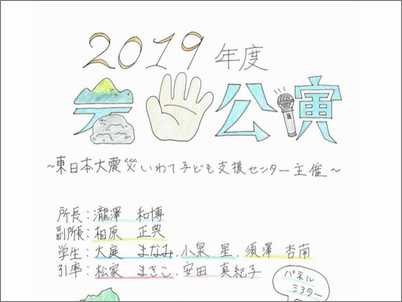 2019年度
公演
~東日本大震災いわて子ども支援センター主催~
所長:瀧澤 和博
副所長:相原 正典
学生:大庭 まなみ、小泉 星、須澤 杏南
引率:松家 まきこ、安田 真紀子
パネル
シアター